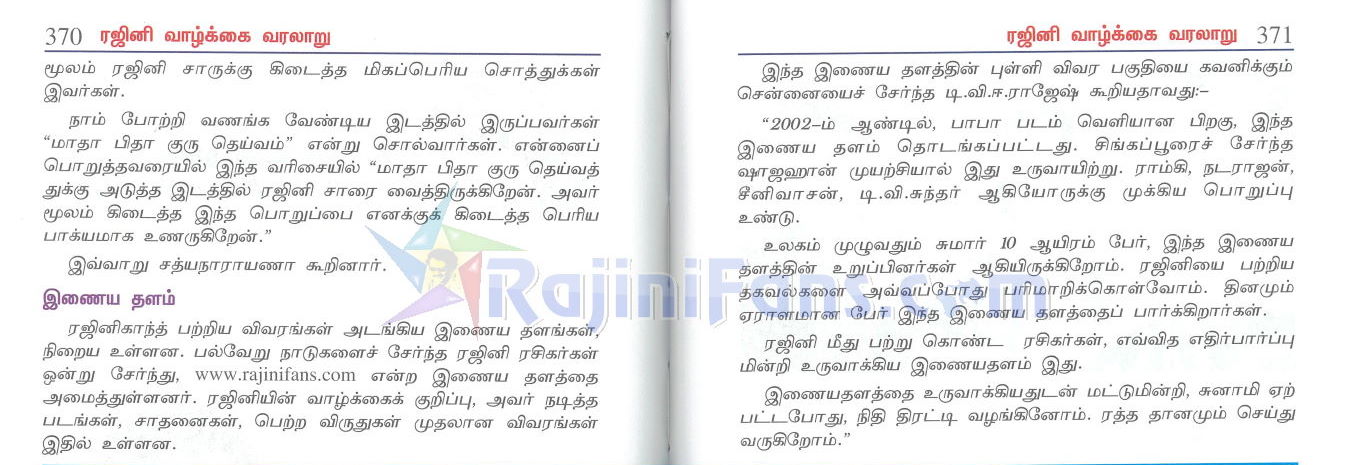 370 ரஜினி வாழ்க்கை வரலாறு
மூலம் ரஜினி சாருக்கு கிடைத்த மிகப்பெரிய சொத்துக்கள்
இவர்கள்.
நாம் போற்றி வணங்க வேண்டிய இடத்தில் இருப்பவர்கள்
“மாதா பிதா குரு தெய்வம்” என்று சொல்வார்கள். என்னைப்
பொறுத்தவரையில் இந்த வரிசையில் “மாதா பிதா குரு தெய்வத்
துக்கு அடுத்த இடத்தில் ரஜினி சாரை வைத்திருக்கிறேன். அவர்
மூலம் கிடைத்த இந்த பொறுப்பை எனக்குக் கிடைத்த பெரிய
பாக்யமாக உணருகிறேன்.”
இவ்வாறு சத்யநாராயணா கூறினார்.
இணைய தளம்
ரஜினிகாந்த் பற்றிய விவரங்கள் அடங்கிய இணைய தளங்கள்,
நிறைய உள்ளன. பல்வேறு நாடுகளைச் சேர்ந்த ரஜினி ரசிகர்கள்
ஒன்று சேர்ந்து, www.rajinifans.com என்ற இணைய தளத்தை
அமைத்துள்ளனர். ரஜினியின் வாழ்க்கைக் குறிப்பு, அவர் நடித்த
படங்கள், சாதனைகள், பெற்ற விருதுகள் முதலான விவரங்கள்
இதில் உள்ளன.
ரஜினி வாழ்க்கை வரலாறு 371
இந்த இணைய தளத்தின் புள்ளி விவர பகுதியை கவனிக்கும்
சென்னையைச் சேர்ந்த டி.வி.ஈ.ராஜேஷ் கூறியதாவது:–
“2002–ம் ஆண்டில், பாபா படம் வெளியான பிறகு, இந்த
இணைய தளம் தொடங்கப்பட்டது. சிங்கப்பூரைச் சேர்ந்த
ஷாஜஹான் முயற்சியால் இது உருவாயிற்று. ராம்கி, நடராஜன்,
சீனிவாசன், டி.வி.சுந்தர் ஆகியோருக்கு முக்கிய பொறுப்பு
உண்டு.
உலகம் முழுவதும் சுமார் 10 ஆயிரம் பேர், இந்த இணைய
தளத்தின் உறுப்பினர்கள் ஆகியிருக்கிறோம். ரஜினியை பற்றிய
தகவல்களை அவ்வப்போது பரிமாறிக்கொள்வோம். தினமும்
ஏராளமான பேர் இந்த இணைய தளத்தைப் பார்க்கிறார்கள்.
ரஜினி மீது பற்று கொண்ட ரசிகர்கள், எவ்வித எதிர்பார்ப்பு
மின்றி உருவாக்கிய இணையதளம் இது.
இணையதளத்தை உருவாக்கியதுடன் மட்டுமின்றி, சுனாமி ஏற்
பட்டபோது, நிதி திரட்டி வழங்கினோம். ரத்த தானமும் செய்து
வருகிறோம்.”
RajiniFans.com